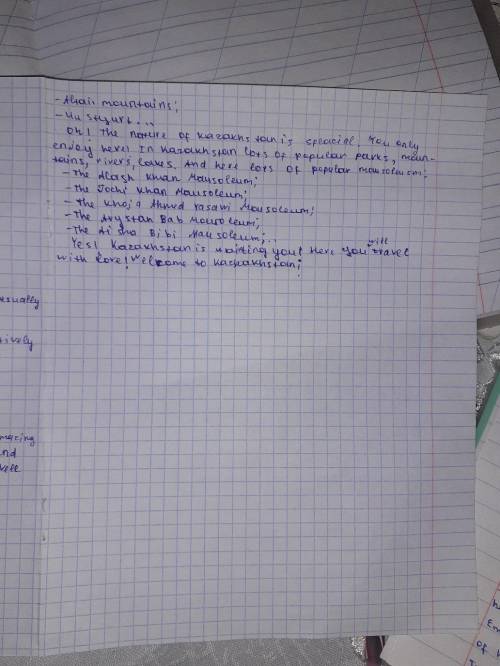 - Altai mountains;
- Ustyurt...
Oh! The nature of Kazakhstan is speacial. You only
enjoy here! In Kazakhstan lots of popular parks, moun-
tains, rivers, lakes. And here lots of popular mausoleum:
- The Alash Khan Mausoleum;
- The Jochi Khan Mausoleum;
- The Khoja Ahmed Yasawi Mausoleum;
- The Arystan Bab Mausoleum;
- The Aisha Bibi Mausoleum;..
Yes! Kazakhstan is waiting you! Here you will travel
with love! Welcome to Kazakhstan;
usually
tively
mazing
and
well
of